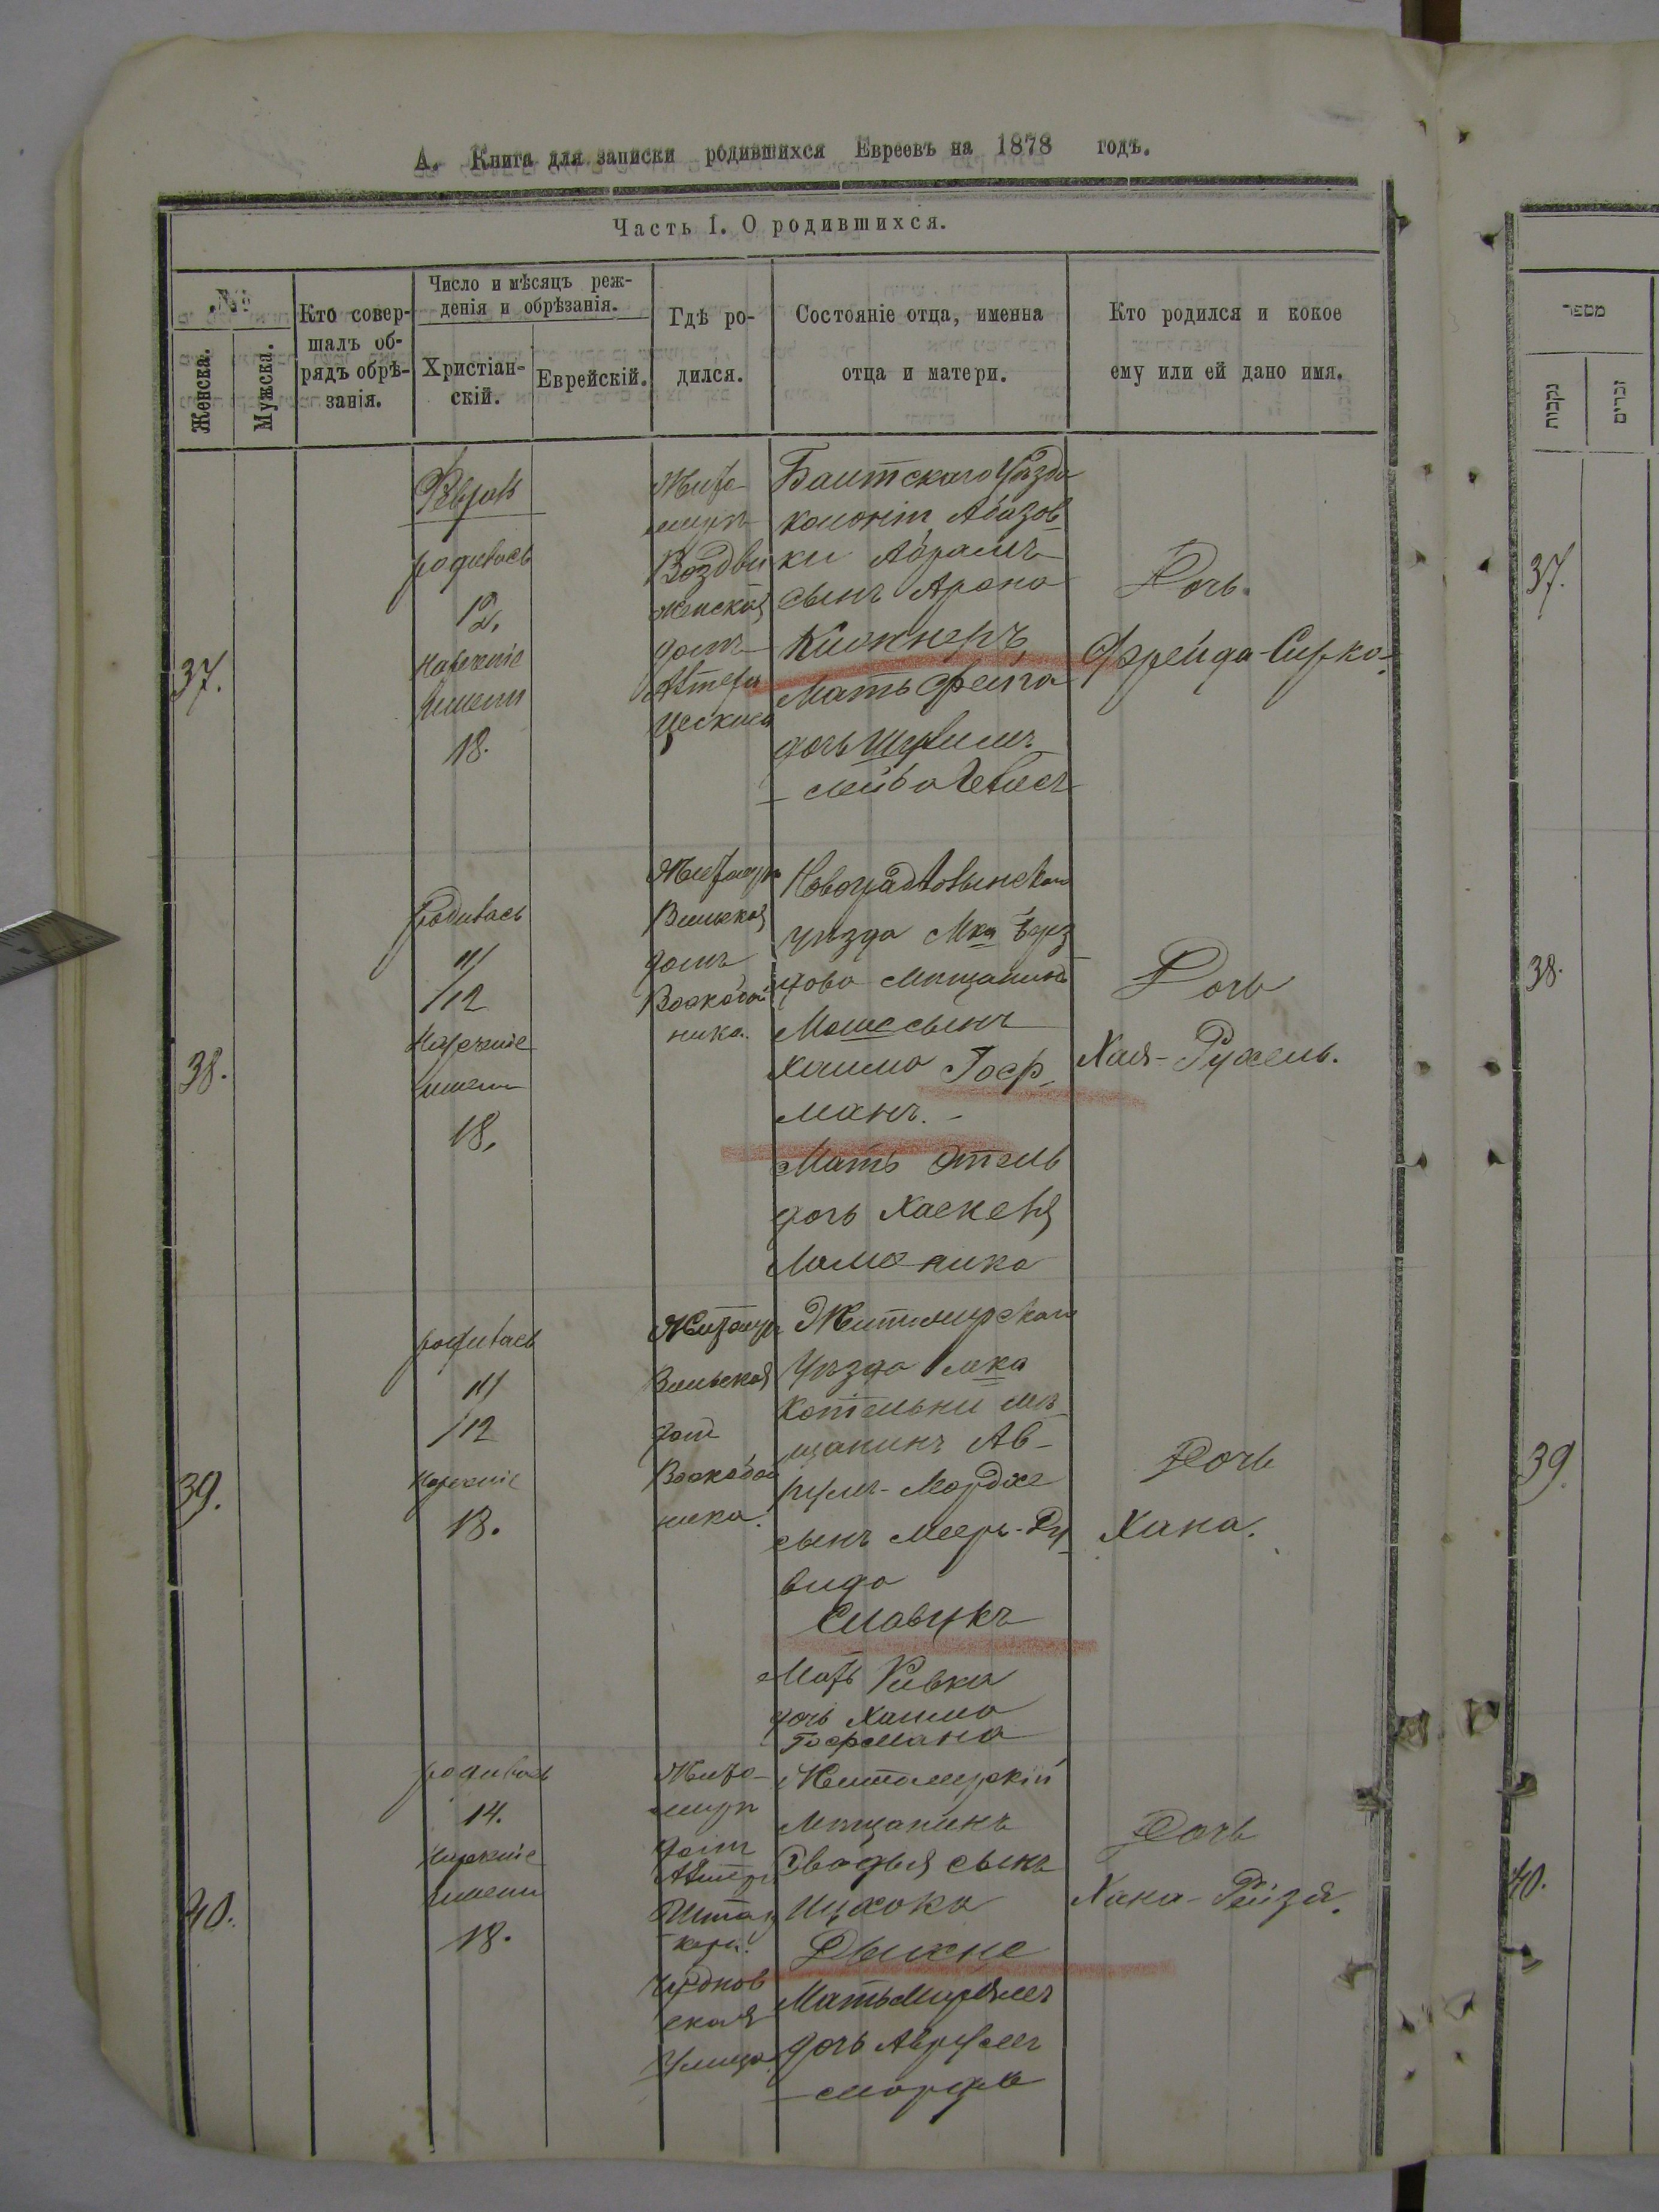 А. Книга для записки родившихся Евреевъ на 1878 годъ.
Часть I. О родившихся.
№
Женска.
Мужска.
Кто совер-
шалъ об-
рядъ обрѣ-
занія.
Число и мѣсяцъ реж-
денія и обрѣзанія.
Христіан-
скій.
Еврейскій.
Гдѣ ро-
дился.
Состояніе отца, именна
отца и матери.
Кто родился и кокое
ему или ей дано имя.
37.
родилась
12.
нареченіе
имени
18.
Жито-
миръ
Воздви
женская
домъ
уѣзда
колоніи
ки Абрамъ
сынъ Арона
Клокнеръ,
Мать Фейга
дочь
Дочь.
Фрейда-Сирка.
38.
Родилась
11/12
Нареченіе
имени
18.
Житомиръ
Вильская
домъ
Воскобой
ника.
Новоградволынскаго
уѣзда Мка Берез
дова мѣщанинъ
Моше сынъ
Хаима Гоф-
манъ.
Мать Этель
дочь Хаскеля
Дочь
Хая-Рухель.
39.
родилась
11/12
Нареченіе
18.
Житомиръ
Вильская
домъ
Воскобой
ника.
Житомирскаго
Уѣзда мка
Котельни мѣ-
щанинъ Ав-
румъ-Мордхе
сынъ Мееръ-Ду
вида
Славукъ
Мать Ривка
дочь Хаима
Гофмана
Дочь
Хана.
40.
родилась
14.
Нареченіе
имени
18.
Жито-
миръ
домъ
Чуднов
ская
Улица.
Житомирскій
Мѣщанинъ
Овадья сынъ
Ицхока
Дыхне
Мать Мирьямъ
дочь Аврумъ
Дочь
Хана-Рейзя.
מספר
נקבות
זכרים
37.
38.
39.
40.